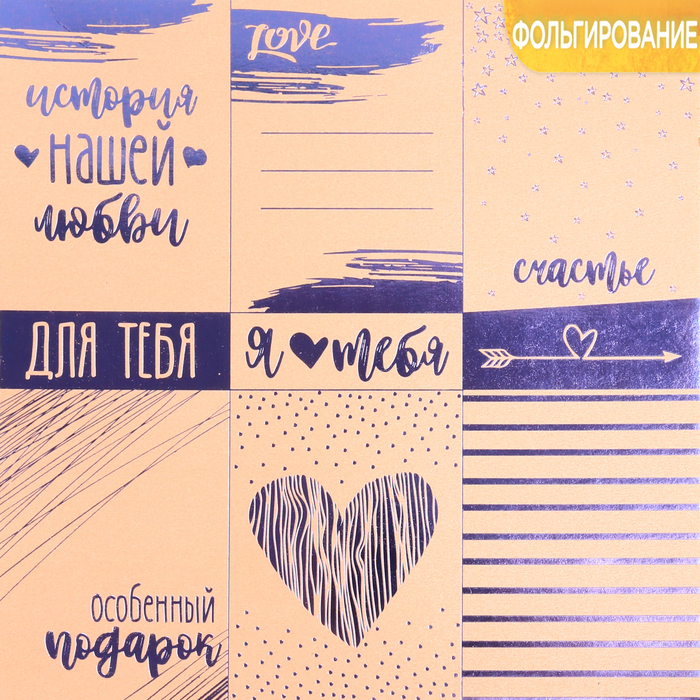 ФОЛЬГИРОВАНИЕ
история
нашей
любви
Love
счастье
ДЛЯ ТЕБЯ
я тебя
особенный
подарок